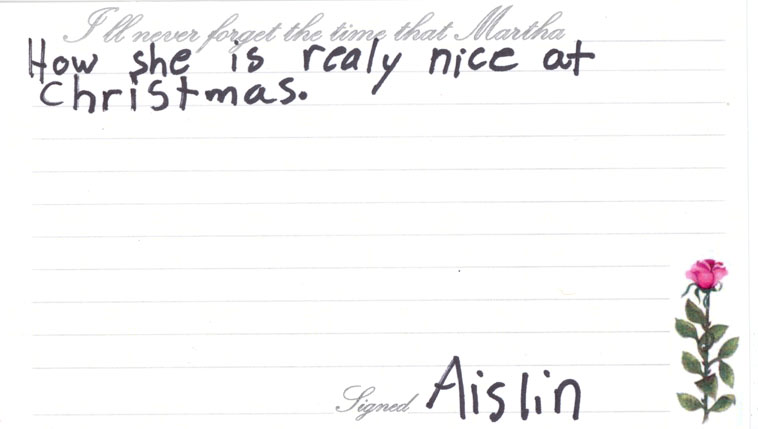 I'll never forget the time that Martha
How she is realy nice at
Christmas.
Signed Aislin